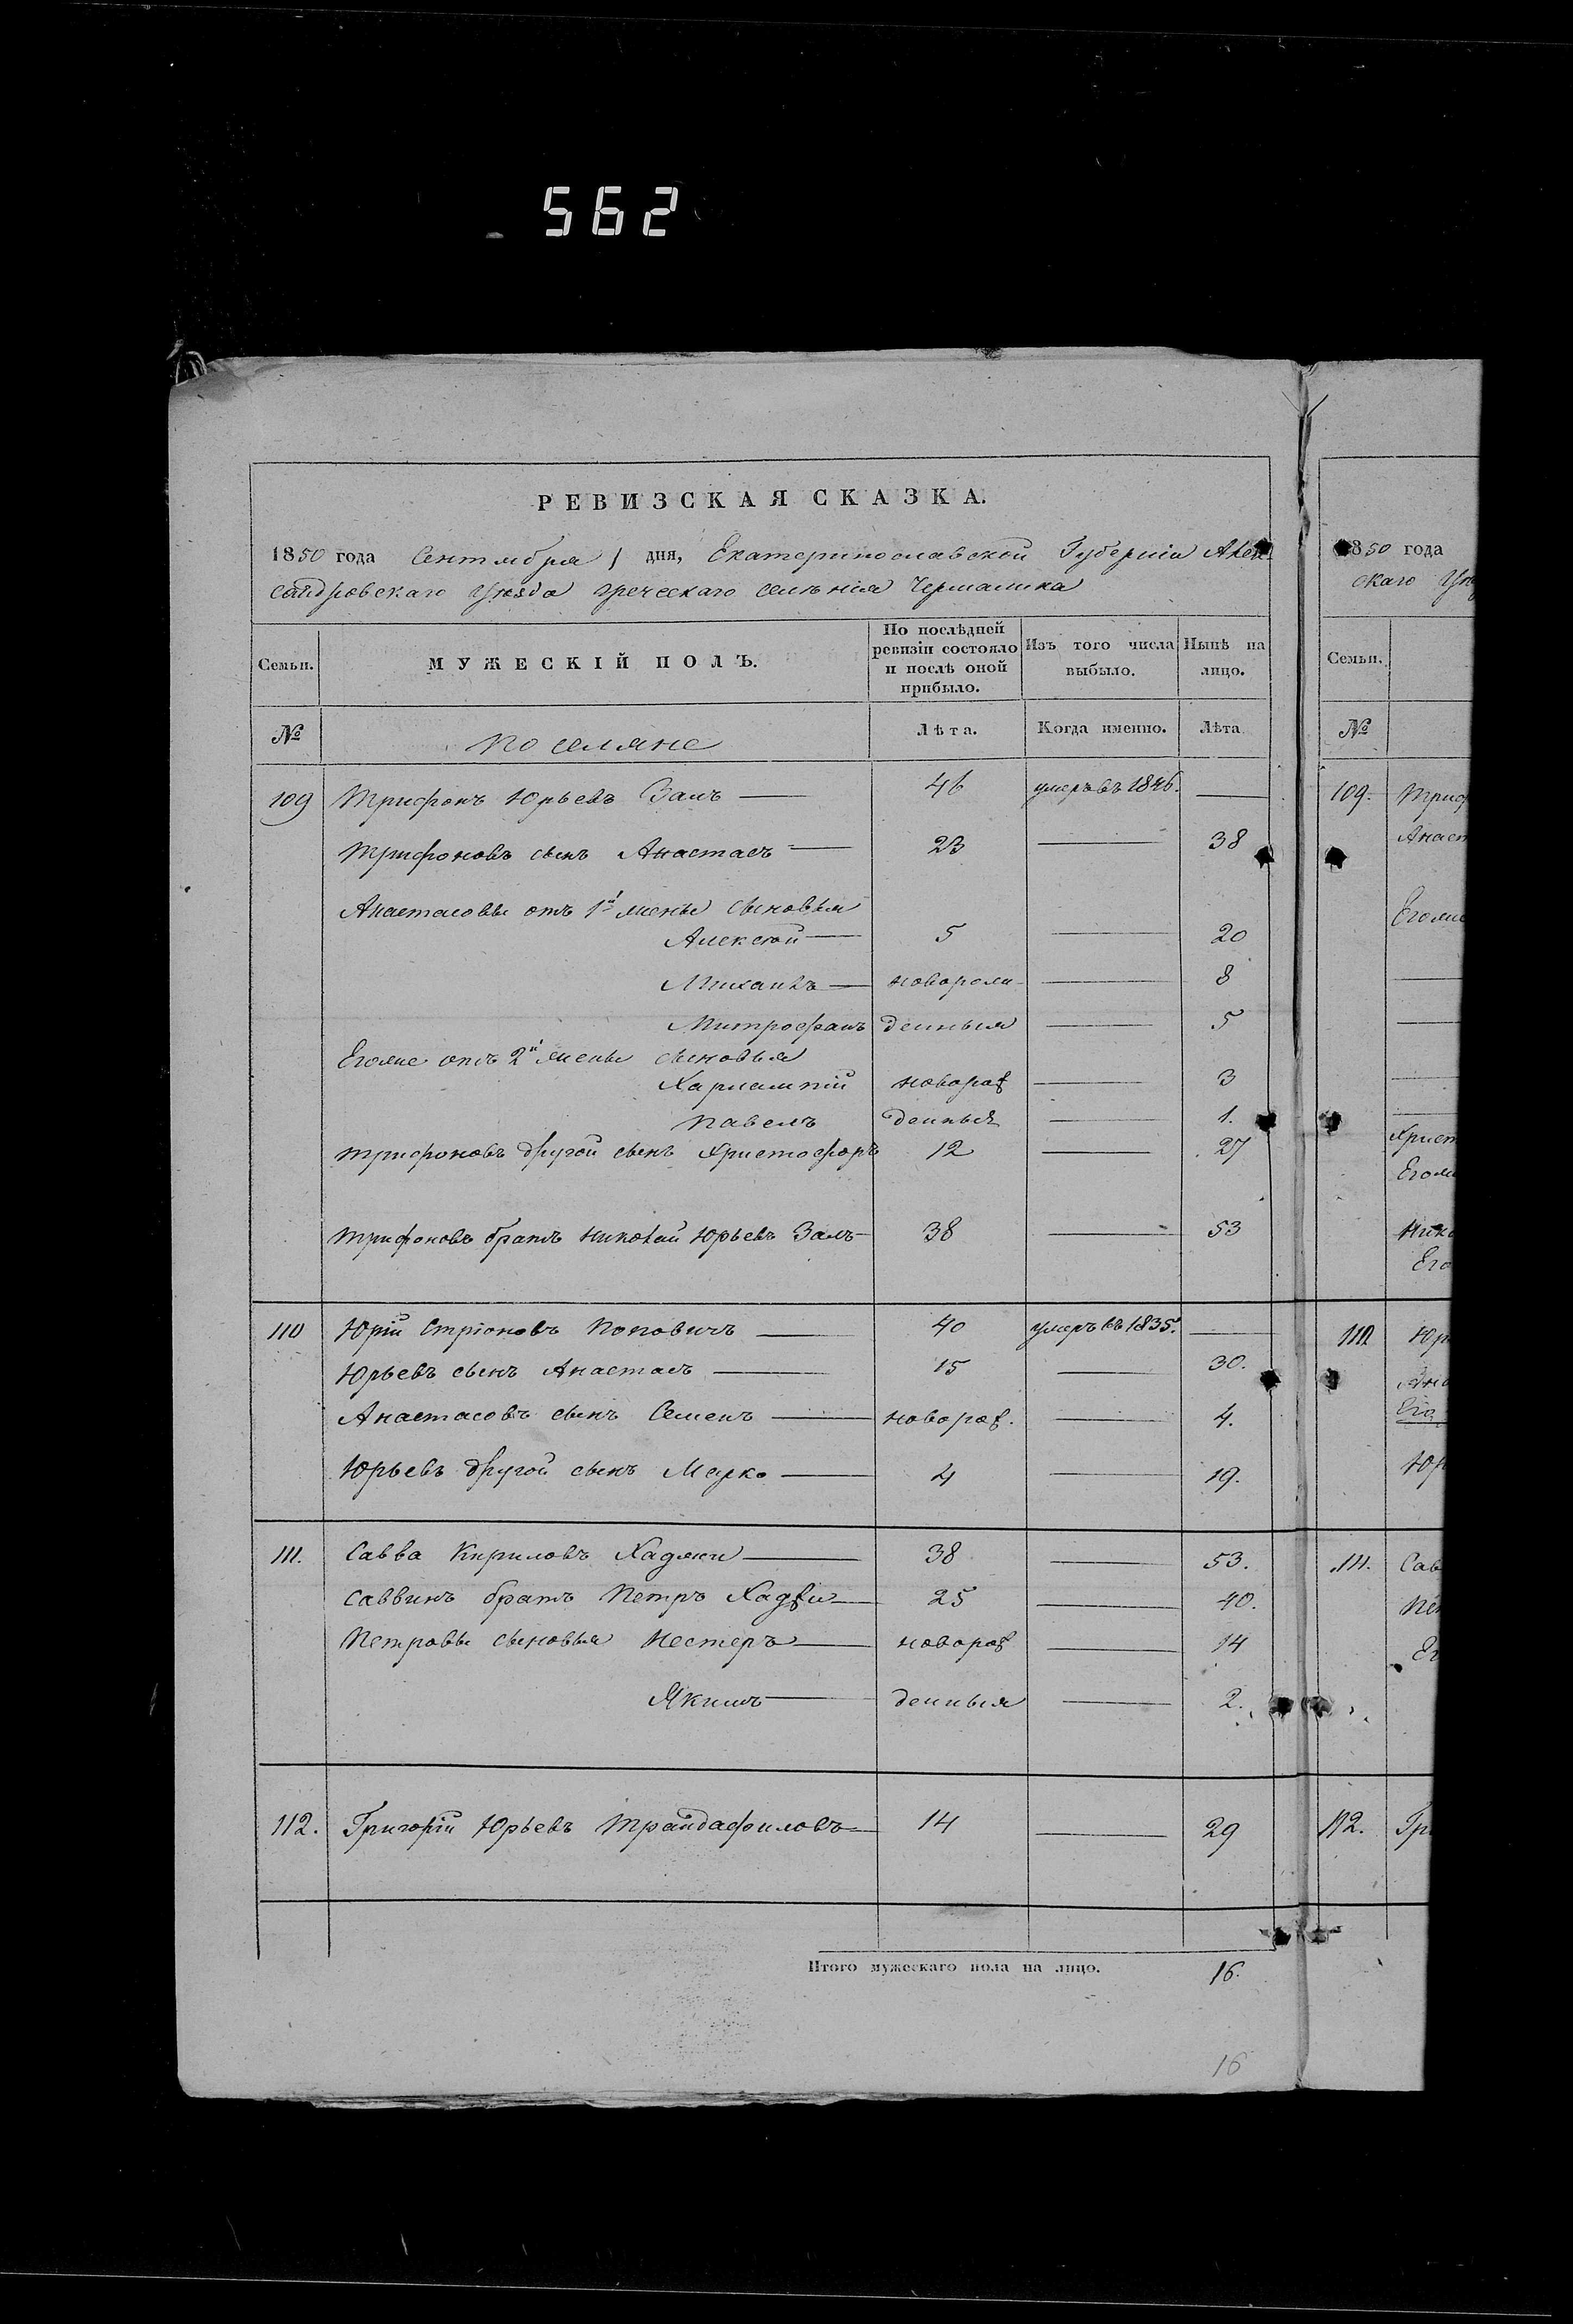 562
РЕВИЗСКАЯ СКАЗКА.
1850 года Сентября 1 дня, Екатеринославской Губерніи Алек
сандровскаго Уѣзда греческаго селенія Чермалика
Семьи. МУЖЕСКІЙ ПОЛЪ. По послѣдней ревизіи состояло и послѣ оной прибыло. Изъ того числа выбыло. Нынѣ на лицо.
№ Поселяне Лѣта. Когда именно. Лѣта
109 Трифонъ Юрьевъ Залъ — 46 умеръ въ 1846. —
Трифоновъ сынъ Анастасъ — 23 — 38
Анастасовы отъ 1й жены сыновья
Алексѣй — 5 — 20
Михаилъ — новорож- — 8
Митрофанъ денныя — 5
Егоже отъ 2й жены сыновья
Харлампій новорож — 3
Павелъ денныя — 1.
Трифоновъ другой сынъ Христофоръ 12 — 27
Трифоновъ братъ Николай Юрьевъ Залъ — 38 — 53
110 Юрій Стріоновъ Поповичъ — 40 умеръ въ 1835. —
Юрьевъ сынъ Анастасъ — 15 — 30.
Анастасовъ сынъ Семенъ — новорож. — 4.
Юрьевъ другой сынъ Марко — 4 — 19.
111. Савва Кириловъ Хаджи — 38 — 53.
Саввинъ братъ Петръ Хаджи — 25 — 40.
Петровы сыновья Нестеръ — новорож — 14
Якимъ — денныя — 2.
112. Григорій Юрьевъ Трандафиловъ — 14 — 29
Итого мужескаго пола на лицо. 16.
16
1850 года
скаго
Семьи.
№
109.
110
111.
112.